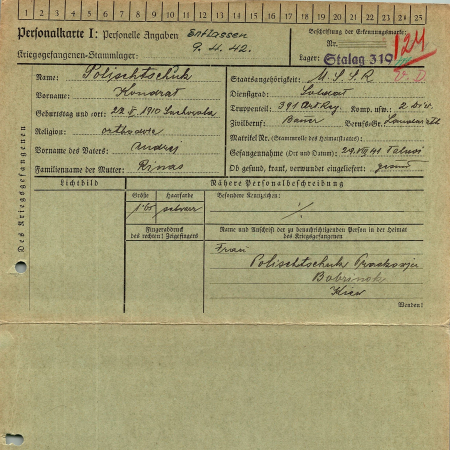 1 2 3 4 5 6 7 8 9 10 11 12 13 14 15 16 17 18 19 20 21 22 23 24 25
Personalkarte I: Personelle Angaben
Entlassen
9. 4. 42.
Kriegsgefangenen-Stammlager:
Beschriftung der Erkennungsmarke
Nr. 124
Lager: Stalag 319
Des Kriegsgefangenen
Name: Polischtschuk
Vorname: Kondrat
Geburtstag und -ort: 1910
Religion: orthodox
Vorname des Vaters: Andrej
Familienname der Mutter: Rinas
Staatsangehörigkeit: U.S.S.R
Dienstgrad: Soldat
Truppenteil: 391 Art. Reg. Komp. usw.:
Zivilberuf: Bauer Berufs-Gr.:
Matrikel Nr. (Stammrolle des Heimatstaates):
Gefangennahme (Ort und Datum): 29.VII 41
Ob gesund, krank, verwundet eingeliefert: gesund
Lichtbild
Nähere Personalbeschreibung
Größe
Haarfarbe
Besondere Kennzeichen:
schwarz
Fingerabdruck
des rechten! Zeigefingers
Name und Anschrift der zu benachrichtigenden Person in der Heimat
des Kriegsgefangenen
Frau
Polischtschuk
Kiew
Wenden!